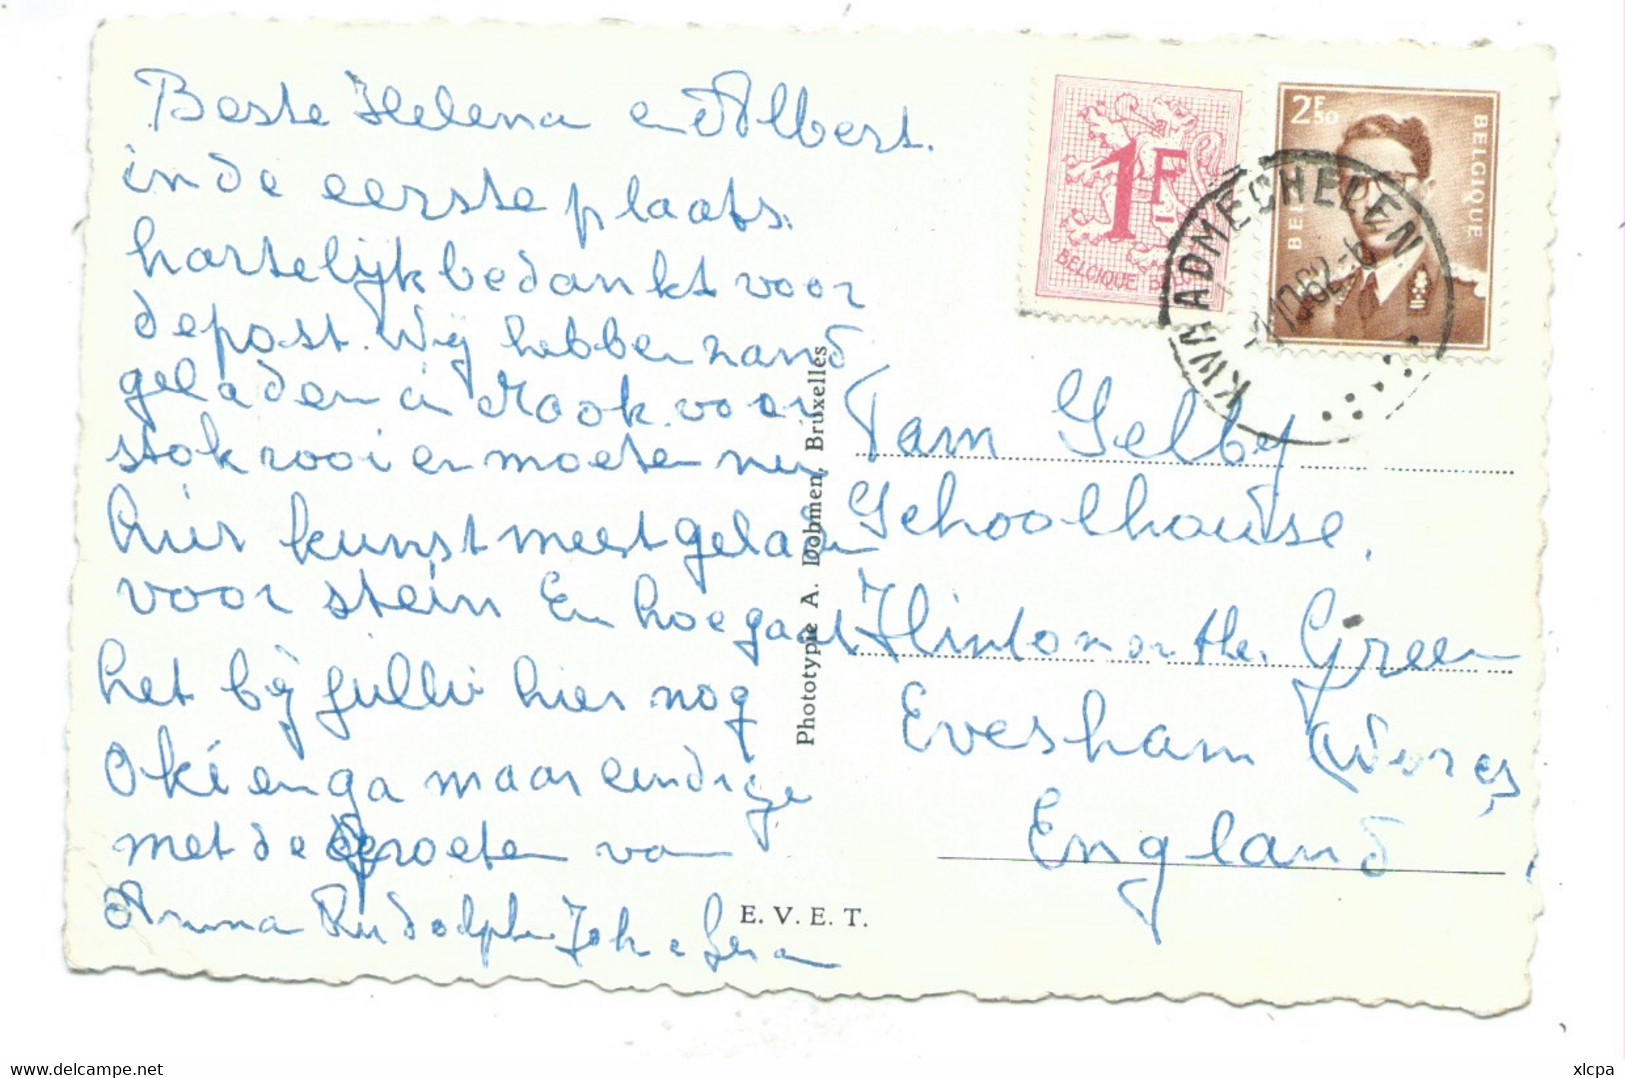 Beste Helena en Albert.
in de eerste plaats.
hartelijk bedankt voor
de post. Wij hebben zand
geladen in Mook voor
stokrooi en moeten nu
hier kunstmest geladen
voor stein En hoe gaat
het bij jullie hier nog
Oki en ga maar eindige
met de groeten van
Anna Rudolph Joh e
1F
BELGIQUE BELGIE
2F50
BELGIQUE
BEL
KWAADMECHELEN
10.62-6
Tam Selby
Schoolhouse,
Hinton on the Green
Evesham Worcs
England
Phototypie A. Dohmen, Bruxelles
E. V. E. T.
delcampe.net
xlcpa